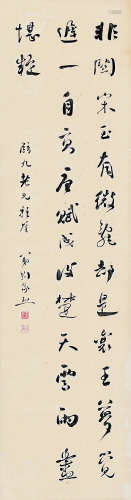 非關宋玉有微辭卻是襄王夢覺
遲一自高唐賦成後楚天雲雨盡
堪疑
九老兄雅屬